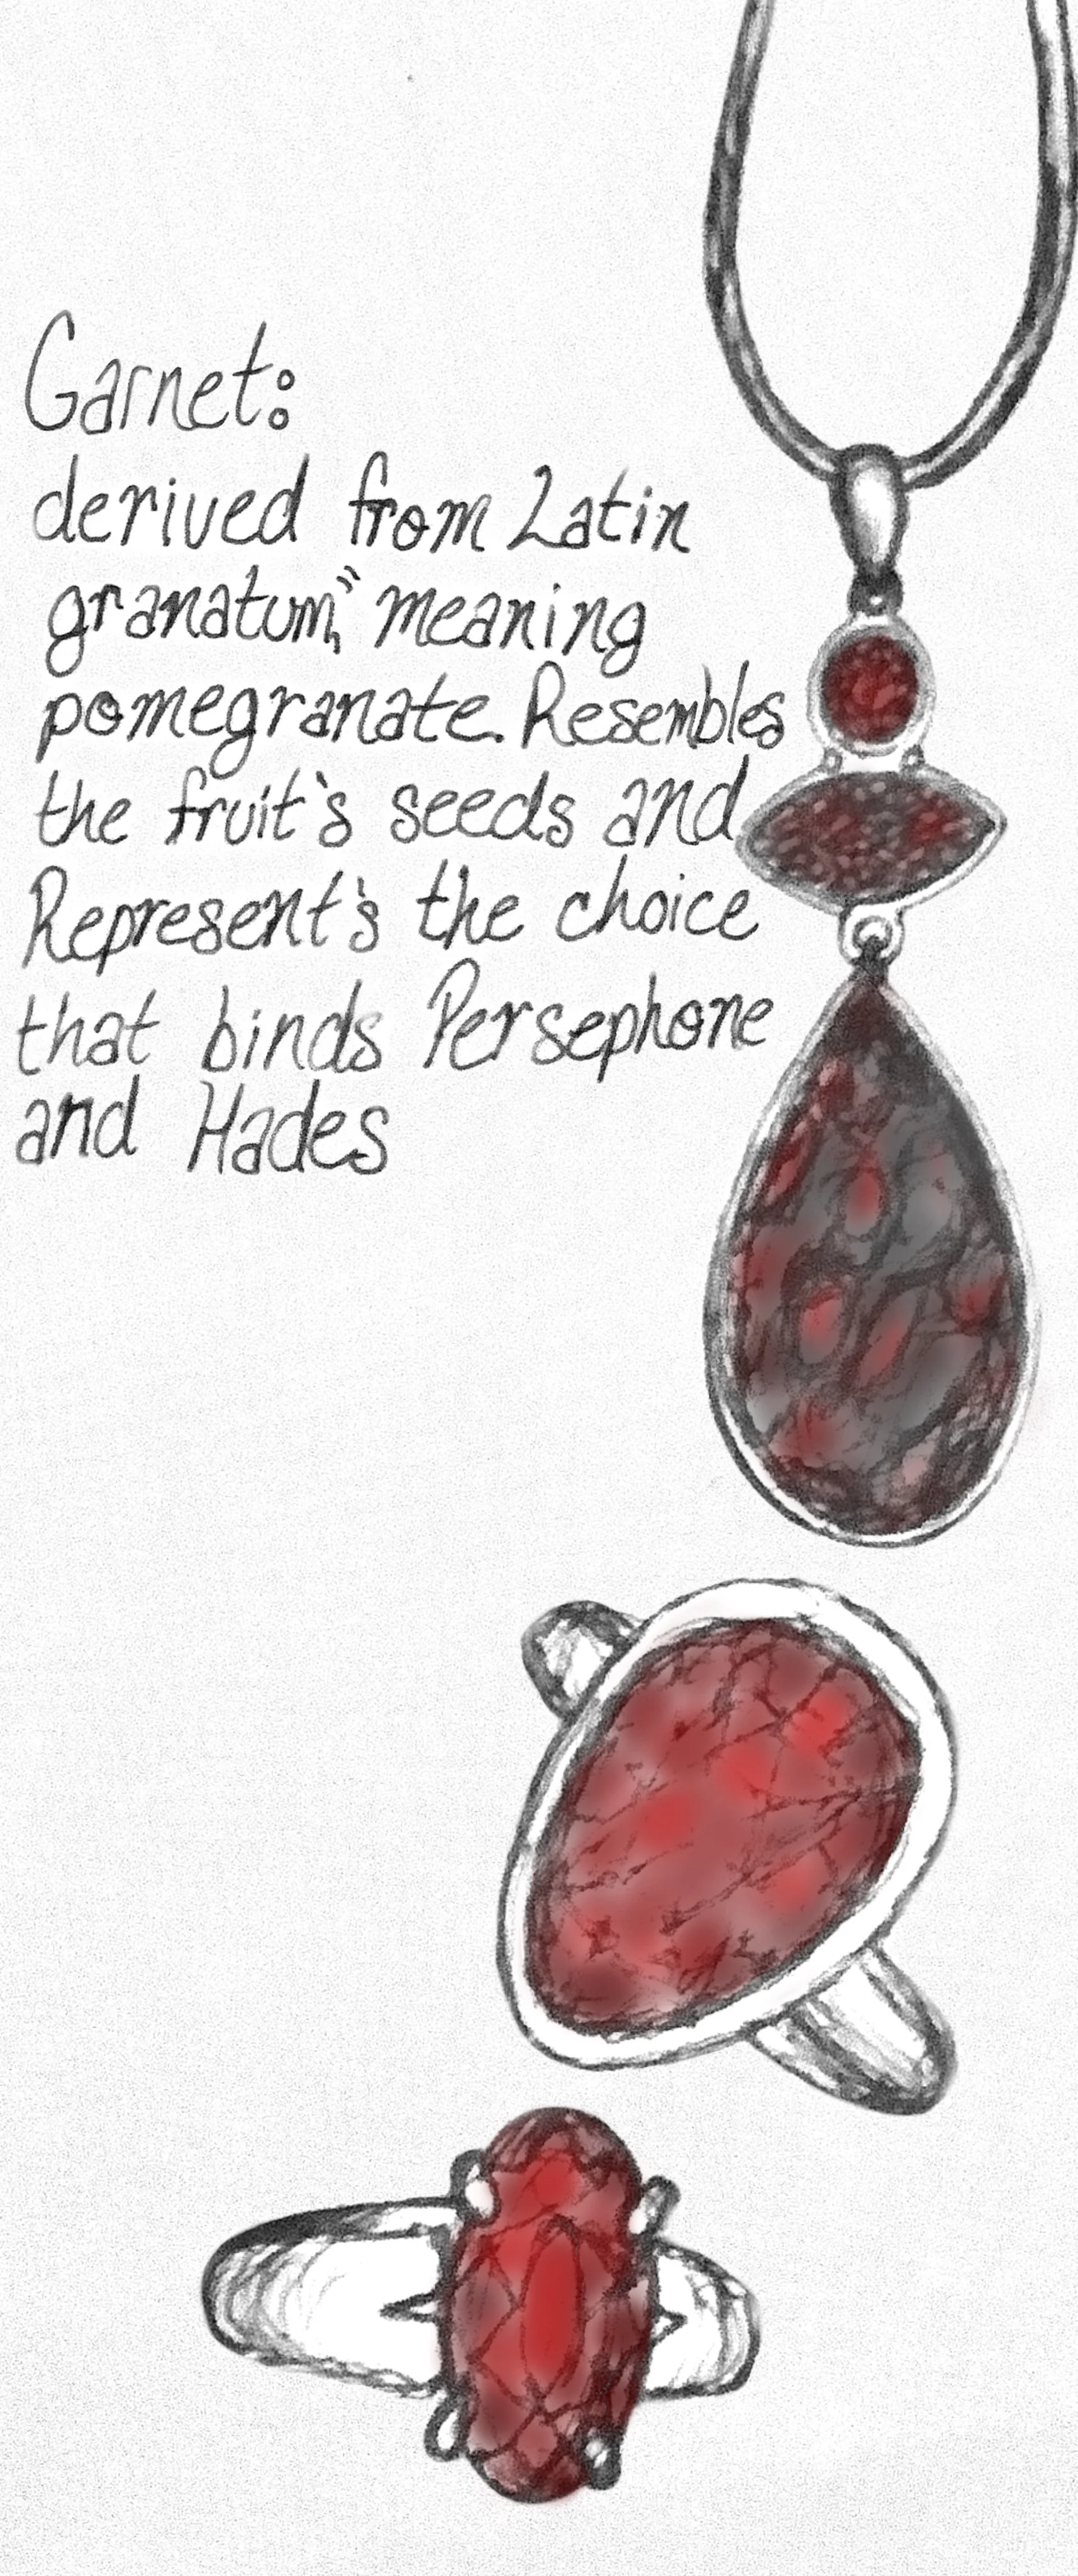 Garnet:
derived from Latin
granatum," meaning
pomegranate. Resembles
the fruit's seeds and
Represent's the choice
that binds Persephone
and Hades